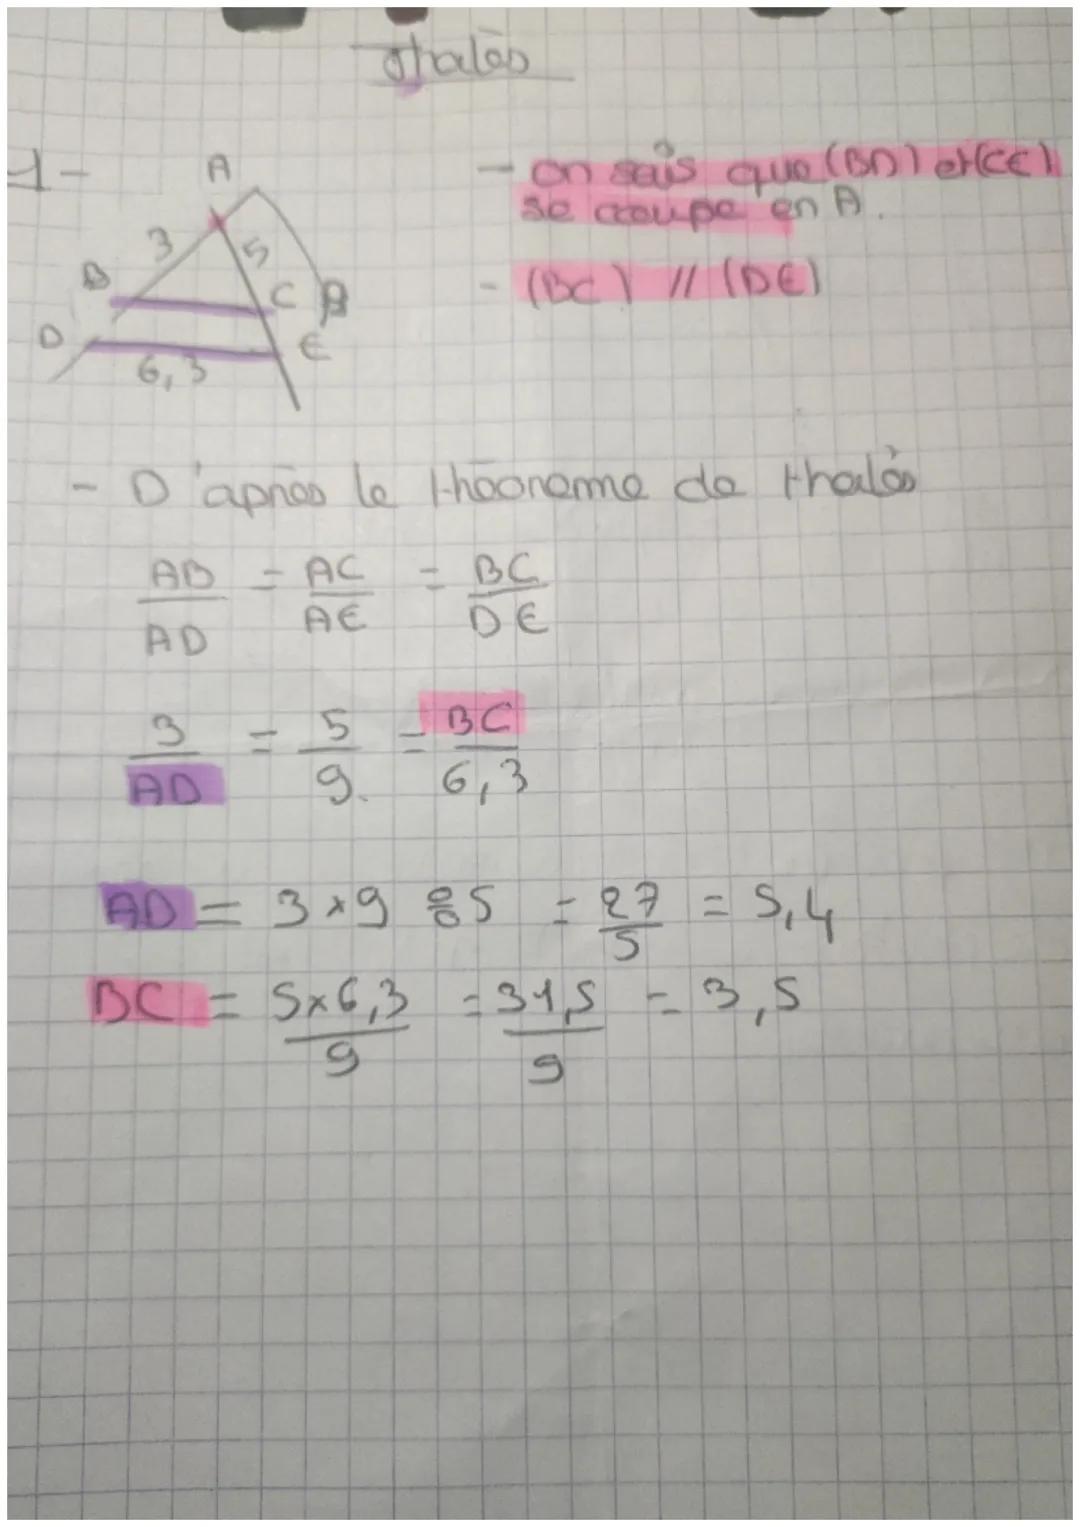 Thalès
1-
A
3
5
B
C
9
D
E
6,3
- on sais que (BD) et (CE)
se croupe en A.
- (BC) // (DE)
- D'après le théoreme de thalès
AB/AD = AC/AE = BC/DE
3/AD = 5/9. = BC/6,3
AD = 3x9 ÷ 5 = 27/5 = 5,4
BC = 5x6,3/9 = 31,5/9 = 3,5